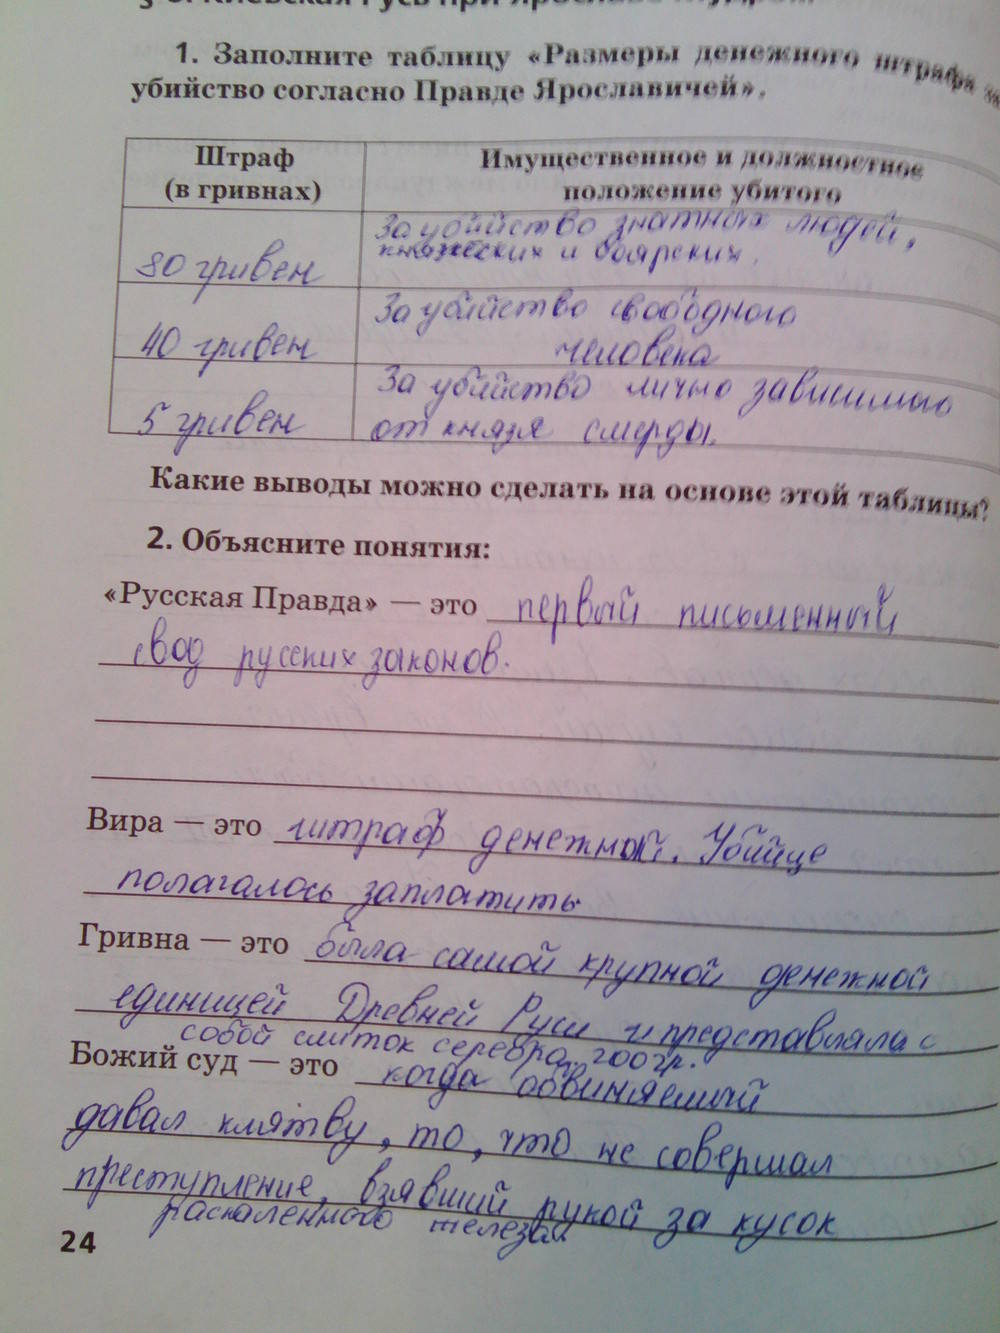 § 6. Киевская Русь при Ярославе Мудром
1. Заполните таблицу «Размеры денежного штрафа за
убийство согласно Правде Ярославичей».
Штраф
(в гривнах)
Имущественное и должностное
положение убитого
80 гривен
За убийство знатных людей,
княжеских и боярских.
40 гривен
За убийство свободного
человека
5 гривен
За убийство лично зависимого
от князя смерды.
Какие выводы можно сделать на основе этой таблицы?
2. Объясните понятия:
«Русская Правда» — это первый письменный
свод русских законов.
Вира — это штраф денежной. Убийце
полагалось заплатить
Гривна — это была самой крупной денежной
единицей Древней Руси и представляла с
собой слиток серебра, 200гр.
Божий суд — это когда обвиняемый
давал клятву, то, что не совершал
преступление, взявший рукой за кусок
раскаленного железа.
24